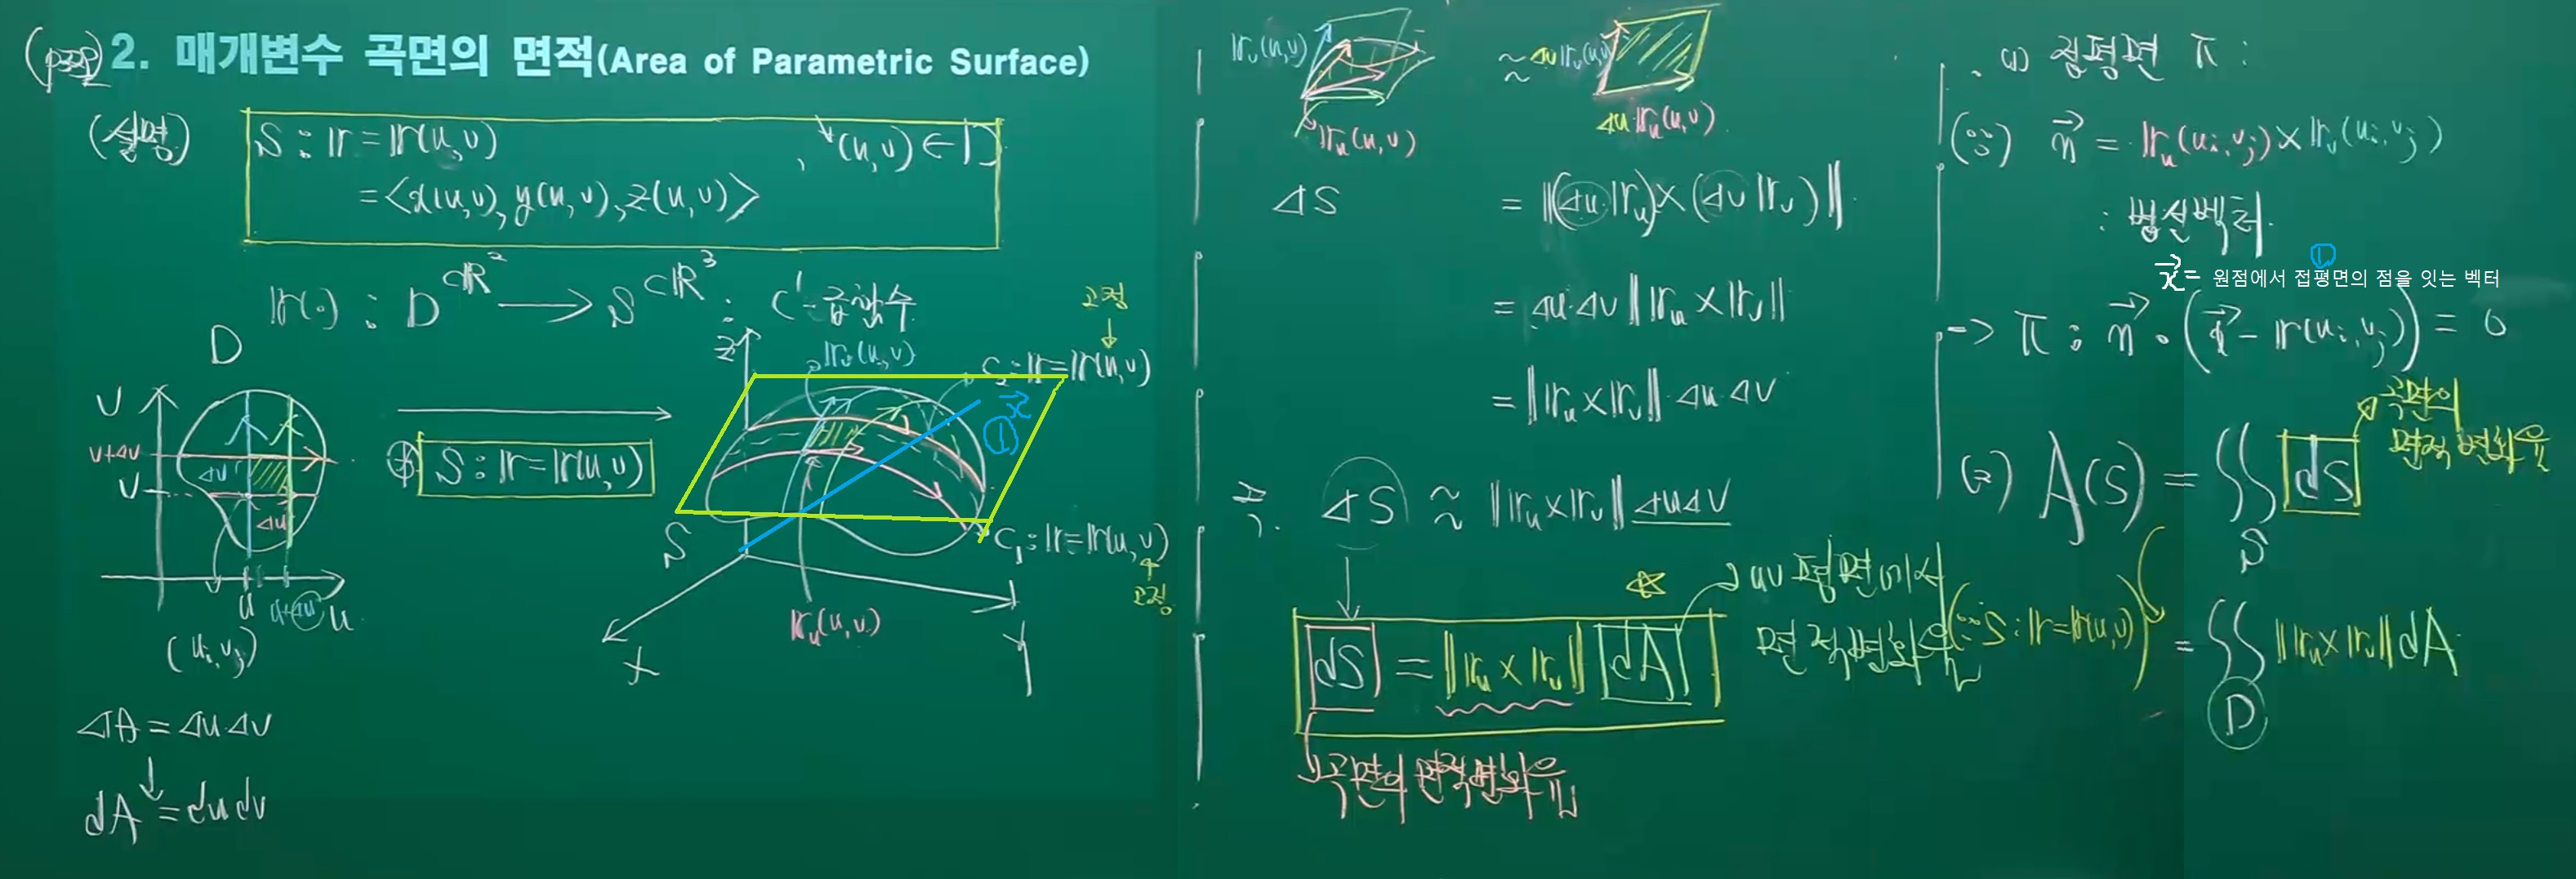 2. 매개변수 곡면의 면적(Area of Parametric Surface)
(설명)
S : r = r(u,v) , (u,v) ∈ D
= <x(u,v), y(u,v), z(u,v)>
r(·) : D ⊂ ℝ² → S ⊂ ℝ³ : C¹-급함수
D
v
v+Δv
v
Δv
Δu
u
u+Δu
u
(uᵢ,vⱼ)
ΔA = Δu·Δv
↓
dA = du dv
S : r = r(u,v)
z
r_v(u,v)
고정
↓
C₂ : r = r(u,v)
x⃗
①
S
C₁ : r = r(u,v)
↑
고정
r_u(u,v)
X
Y
r_v(u,v)
r_u(u,v)
≈
Δv r_v(u,v)
Δu·r_u(u,v)
ΔS = ‖(Δu·r_u)×(Δv r_v)‖
= Δu·Δv‖r_u × r_v‖
= ‖r_u × r_v‖·Δu·Δv
ΔS ≈ ‖r_u × r_v‖ΔuΔv
↓
☆
dS = ‖r_u × r_v‖ dA
uv 평면에서
면적변화율
곡면의 면적변화율
(1) 접평면 π :
(∵) n⃗ = r_u(uᵢ,vⱼ)×r_v(uᵢ,vⱼ)
: 법선벡터
①
x⃗ = 원점에서 접평면의 점을 잇는 벡터
→ π : n⃗ · (x⃗ − r(uᵢ,vⱼ)) = 0
(2) A(S) = ∬_S dS
곡면의
면적변화율
(∵ S : r = r(u,v))
= ∬_D ‖r_u × r_v‖dA